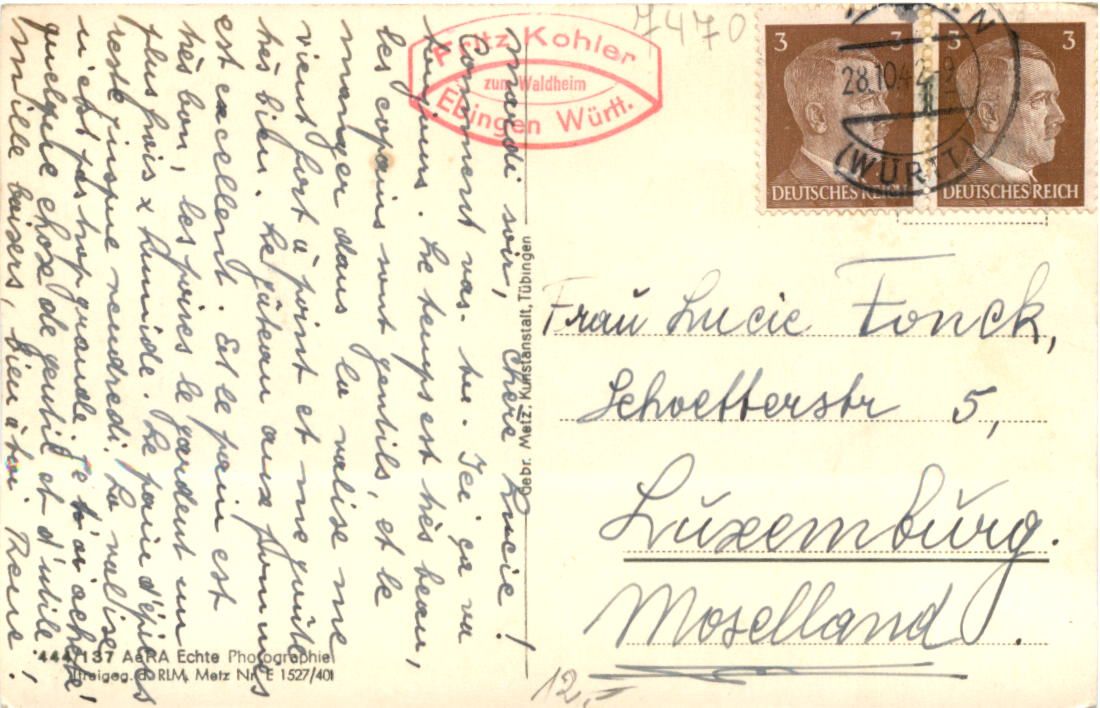 mardi soir, Chère Lucie!
Comment vas-tu. Ici ça va
toujours. Le temps est très beau,
les copains sont gentils, et le
manger dans la valise me
vient fort à point et me goûte
très bien. Le gâteau aux pommes
est excellent. Et le pain est
très bon, les poires le gardent un
plus frais x humide. Le pain d'épices
reste jusque vendredi. La valise
n'est pas trop grande. Je t'ai acheté
quelque chose de gentil et d'utile!
Mille baisers, bien à toi. René!
Fritz Kohler
zum Waldheim
Ebingen Württ.
7470
3 3
DEUTSCHES REICH
3 3
DEUTSCHES REICH
28.10.42-9
(WÜRTT)
Gebr. Metz, Kunstanstalt, Tübingen
Frau Lucie Fonck,
Schvetterstr 5,
Luxemburg.
Moselland.
444/137 AeRA Echte Photographie
freigeg. d. RLM, Metz Nr. E 1527/401
12,-